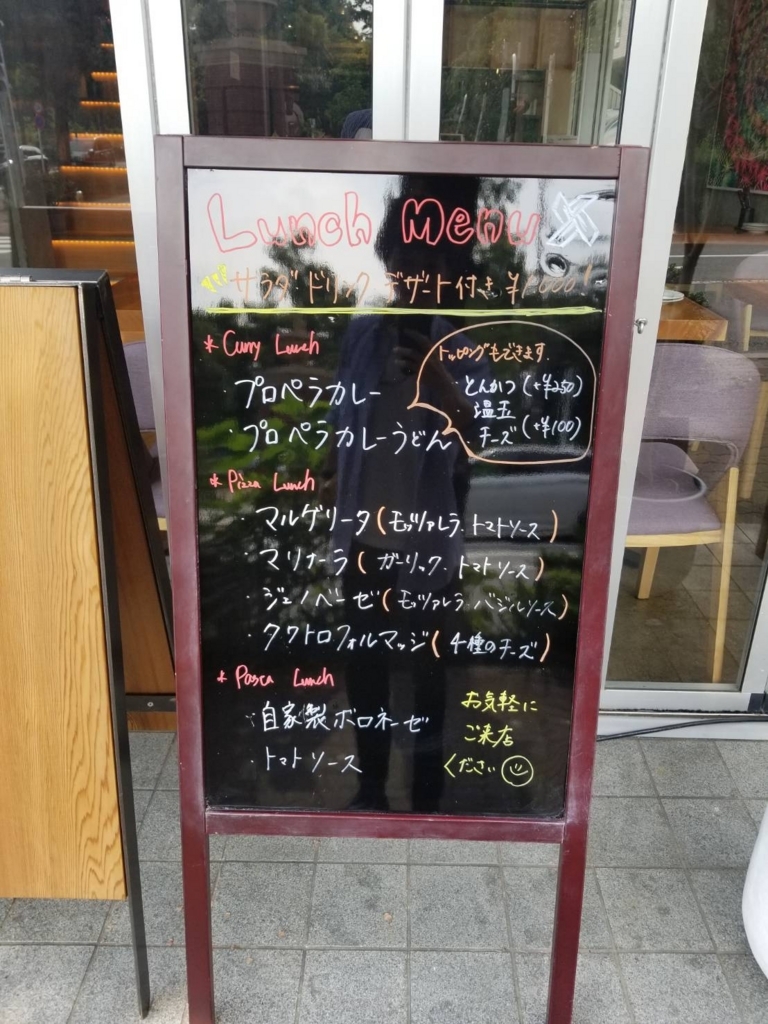 Lunch Menu
サラダ ドリンク デザート付き ¥1,000!
* Curry Lunch
・プロペラカレー
・プロペラカレーうどん
トッピングもできます.
・とんかつ (+¥250)
・温玉
・チーズ (+¥100)
* Pizza Lunch
・マルゲリータ (モッツァレラ・トマトソース)
・マリナーラ (ガーリック・トマトソース)
・ジェノベーゼ (モッツァレラ・バジルソース)
・クワトロフォルマッジ (4種のチーズ)
* Pasca Lunch
・自家製ボロネーゼ
・トマトソース
お気軽に
ご来店
ください